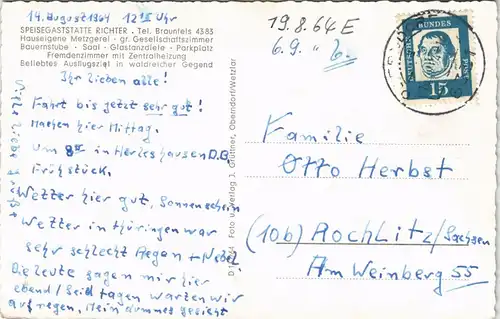 14. August 1964 12 15 Uhr
19. 8. 64 E
6. 9. " b.
SPEISEGASTSTÄTTE RICHTER · Tel. Braunfels 4383
Hauseigene Metzgerei · gr. Gesellschaftszimmer
Bauernstube · Saal · Glastanzdiele · Parkplatz
Fremdenzimmer mit Zentralheizung
Beliebtes Ausflugsziel in waldreicher Gegend
Ihr lieben alle!
Fahrt bis jetzt sehr gut!
Machen hier Mittag.
Um 8 in Herleshausen D.B.
Frühstück.
Wetter hier gut, Sonnenschein
Wetter in Thüringen war
sehr schlecht Regen + Nebel
Die leute sagen mir hier
eben/ Seid tagen warten wir
auf regen, Mein dummes gesicht
Viele liebe Grüße
Foto u. Verlag J. Grüttner, Oberndorf/Wetzlar
DEUTSCHE BUNDESPOST
15
Familie
Otto Herbst
(10b) Rochlitz/Sachsen
Am Weinberg 55